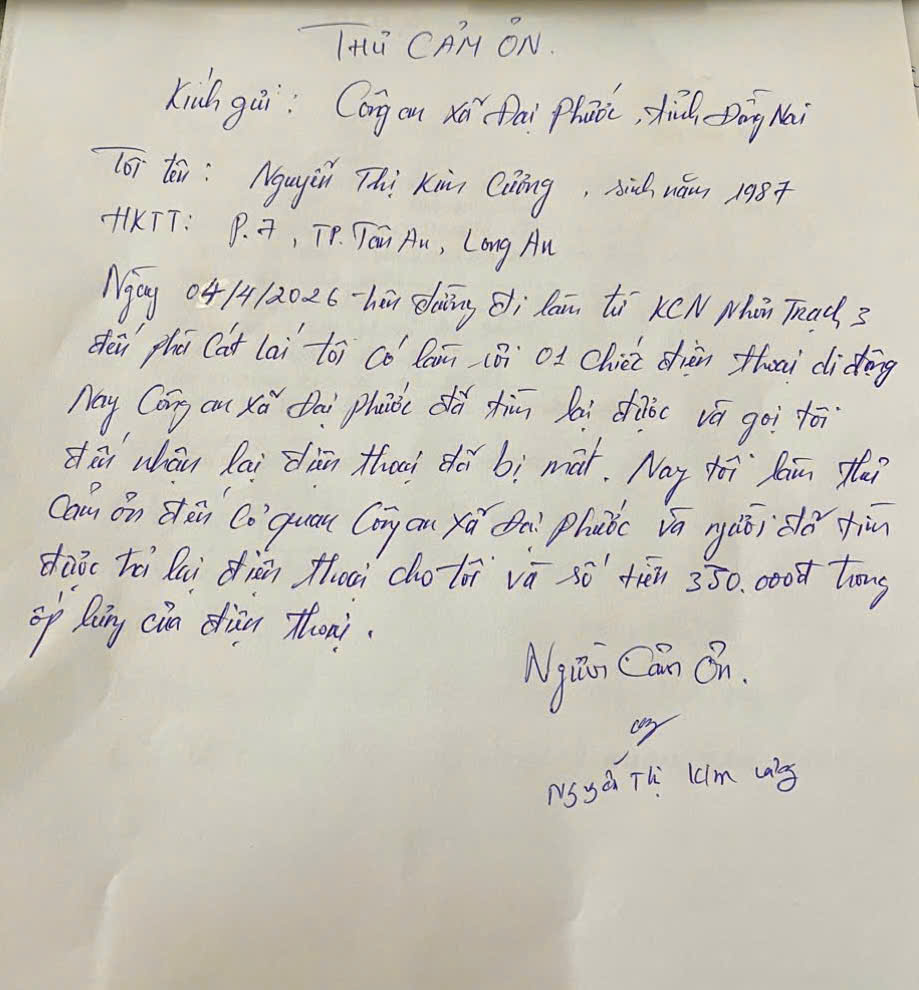 THƯ CẢM ƠN.
Kính gửi: Công an xã Đại Phước, tỉnh Đồng Nai
Tôi tên: Nguyễn Thị Kim Cường, sinh năm 1987
HKTT: P.7, TP. Tân An, Long An
Ngày 04/4/2026 trên đường đi làm từ KCN Nhơn Trạch 3
đến phà Cát Lái tôi có làm rơi 01 chiếc điện thoại di động
Nay Công an xã Đại Phước đã tìm lại được và gọi tôi
đến nhận lại điện thoại đã bị mất. Nay tôi làm thư
Cảm ơn đến Cơ quan Công an xã Đại Phước và người đã tìm
được trả lại điện thoại cho tôi và số tiền 350.000đ trong
ốp lưng của điện thoại.
Người Cảm Ơn.
Nguyễn Thị Kim Cường